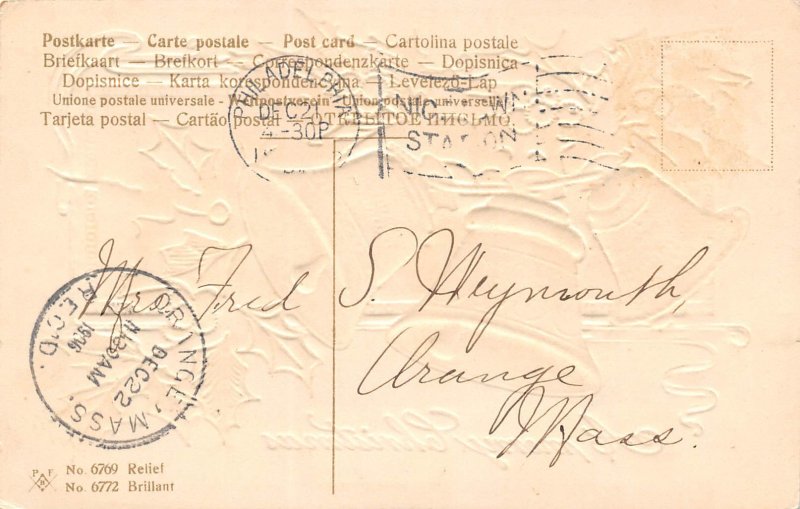 Postkarte — Carte postale — Post card — Cartolina postale
Briefkaart — Brefkort — Correspondenzkarte — Dopisnica
Dopisnice — Karta korespondencyjna — Levelező-Lap
Unione postale universale - Weltpostverein - Union postale universelle
Tarjeta postal — Cartão postal — ОТКРЫТОЕ ПИСЬМО.
PHILADELPHIA, PA.
DEC 21
4-30P
STATION
Mrs. Fred S. Weymouth,
Orange
Mass.
ORANGE, MASS.
DEC 22
11-30AM
1906
REC'D.
P F
B
No. 6769 Relief
No. 6772 Brillant
Christmas